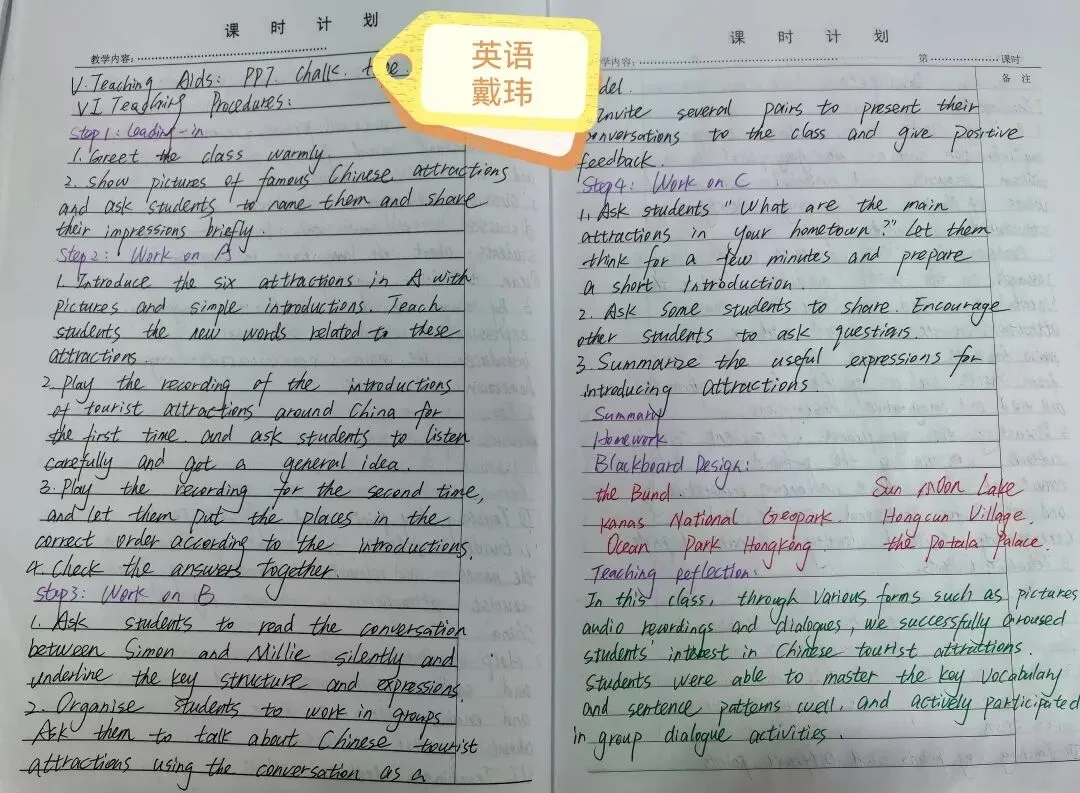 课 时 计 划
教学内容:
V. Teaching Aids: PPT. Chalk.
VI Teaching Procedures:
Step 1: Leading-in
1. Greet the class warmly.
2. Show pictures of famous Chinese attractions
and ask students to name them and share
their impressions briefly.
Step 2: Work on A
1. Introduce the six attractions in A with
pictures and simple introductions. Teach
students the new words related to these
attractions.
2. Play the recording of the introductions
of tourist attractions around China for
the first time. and ask students to listen
carefully and get a general idea.
3. Play the recording for the second time,
and let them put the places in the
correct order according to the introductions.
4. Check the answers together.
Step3: Work on B
1. Ask students to read the conversation
between Simon and Millie silently and
underline the key structure and expressions
2. Organise students to work in groups
Ask them to talk about Chinese tourist
attractions using the conversation as a
英语
戴玮
课 时 计 划
学内容:
第 课时
备 注
del.
Invite several pairs to present their
conversations to the class and give positive
feedback.
Step4: Work on C
1. Ask students "What are the main
attractions in your hometown?" Let them
think for a few minutes and prepare
a short introduction
2. Ask some students to share. Encourage
other students to ask questions.
3. Summarize the useful expressions for
introducing attractions
Summary
Homework
Blackboard Design:
the Bund. Sun Moon Lake
Kanas National Geopark. Hongcun Village.
Ocean Park HongKong. the Potala Palace.
Teaching reflection:
In this class, through various forms such as pictures
audio recordings and dialogues, we successfully aroused
students' interest in Chinese tourist attractions.
Students were able to master the key vocabulary
and sentence patterns well, and actively participated
in group dialogue activities.